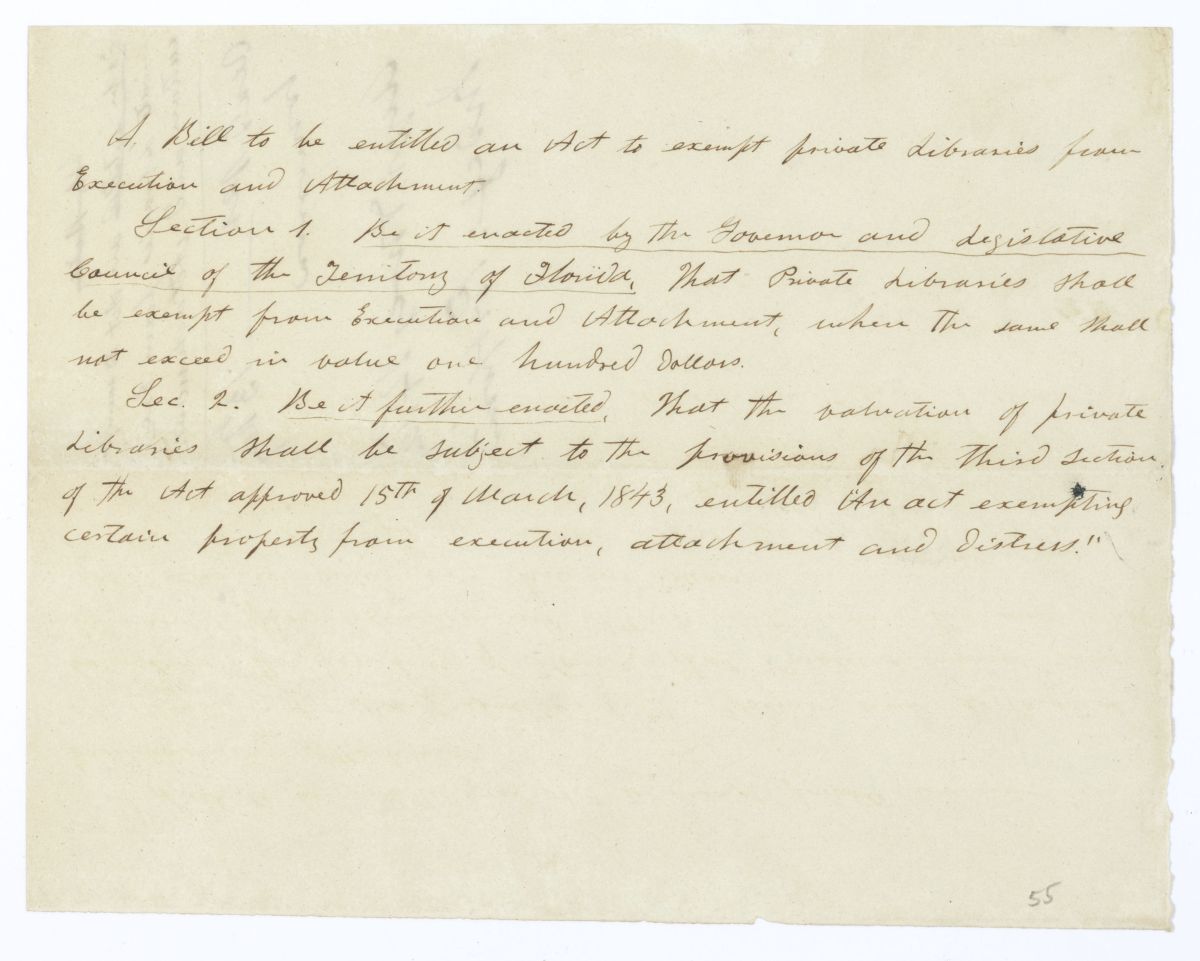 A Bill to be entitled an Act to exempt private Libraries from
Execution and Attachment.
Section 1. Be it enacted by the Governor and Legislative
Council of the Territory of Florida, That Private Libraries shall
be exempt from Execution and Attachment, when the same shall
not exceed in value one hundred dollars.
Sec. 2. Be it further enacted, That the valuation of private
Libraries shall be subject to the provisions of the third section
of the Act approved 15th of March, 1843, entitled "An act exempting
certain property from execution, attachment and distress."
55